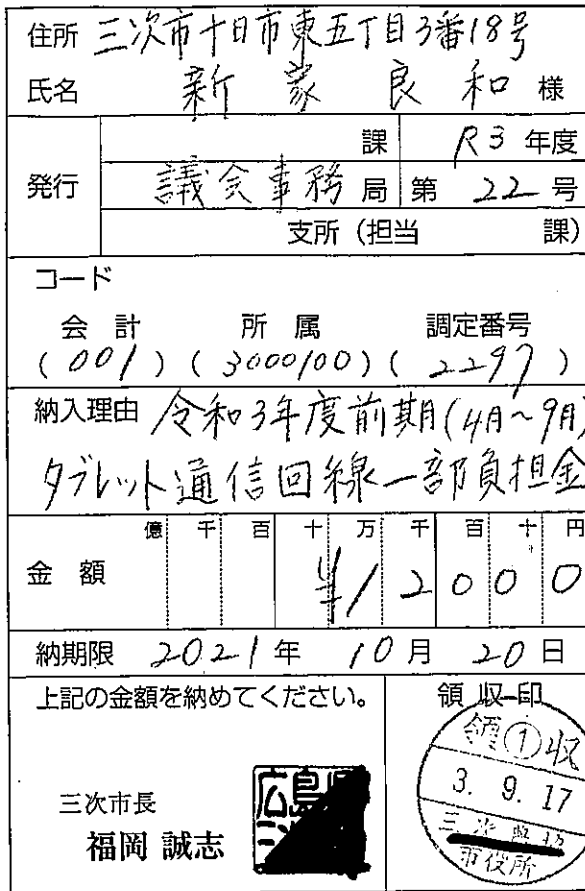 住所 三次市十日市東五丁目3番18号
氏名 新家良和 様
課 R3 年度
発行 議会事務局 第 22 号
支所 (担当 課)
コード
会計 所属 調定番号
(001) (3000100) (2297)
納入理由 令和3年度前期(4月~9月)
タブレット通信回線一部負担金
億 千 百 十 万 千 百 十 円
金額 ¥12000
納期限 2021年 10月 20日
上記の金額を納めてください。
三次市長
福岡 誠志
広島
領収印
領①収
3. 9. 17
市役所